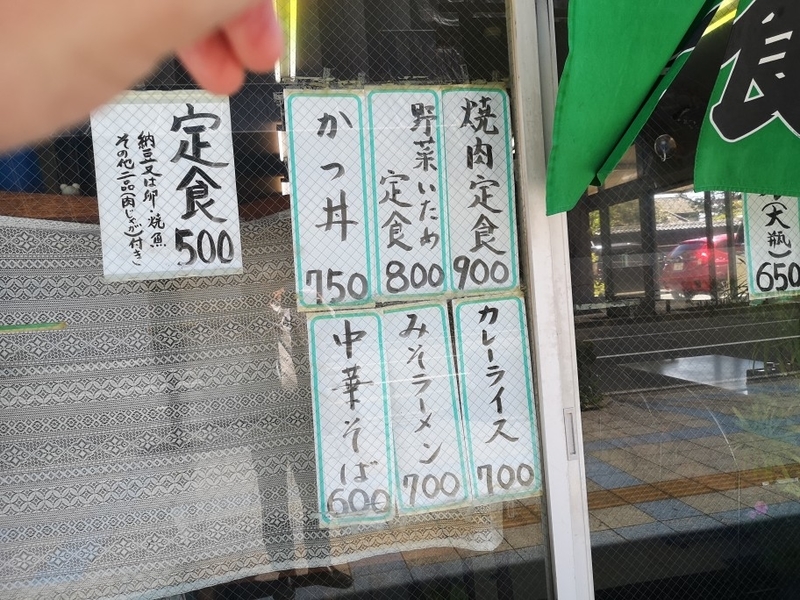 定食
500
納豆又は卵・焼魚
その他二品(肉じゃが)付き
焼肉定食
900
野菜いため
定食
800
かつ丼
750
カレーライス
700
みそラーメン
700
中華そば
600
(大瓶)
650